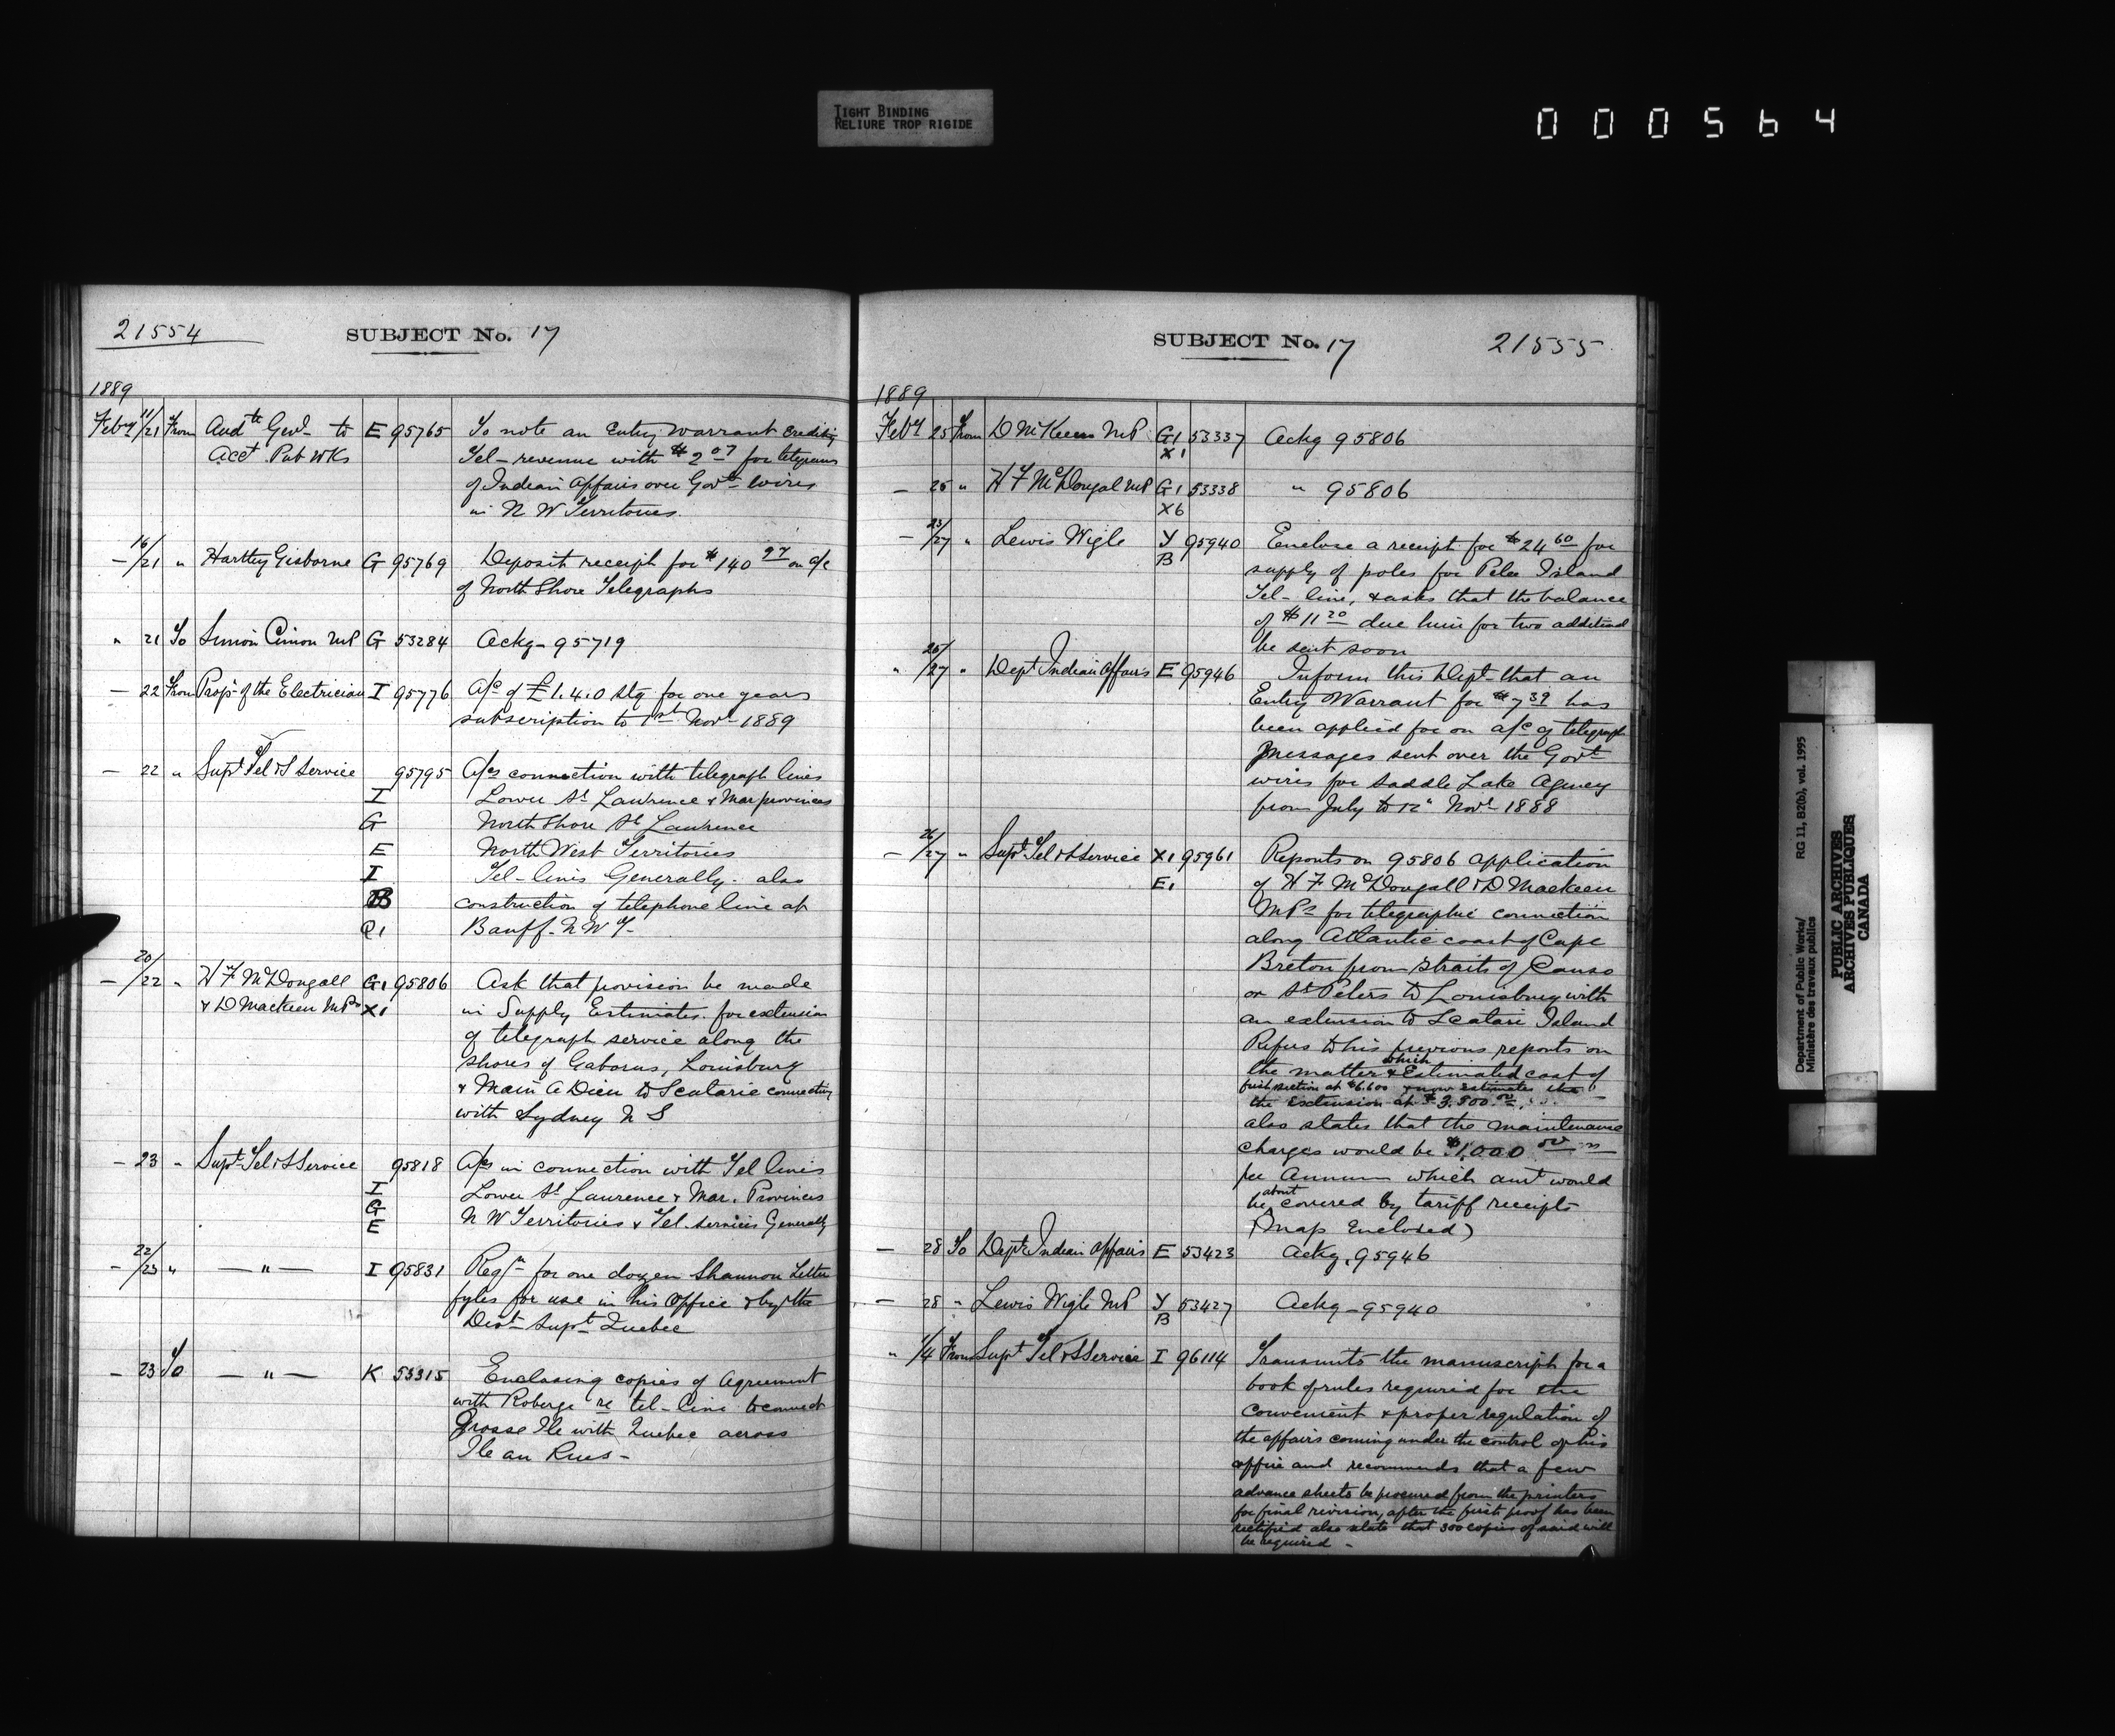 TIGHT BINDING
RELIURE TROP RIGIDE
000564
21554
SUBJECT No. 17
1889
Feby 11/21 From Audtr Genl to E 95765 To note an Entry Warrant crediting
Acct Pub Wks Tel- revenue with $2.07 for telegrams
of Indian Affairs over Govt wires
in N W Territories.
— 16/21 " Hartley Gisborne G 95769 Deposit receipt for $140 97 on a/c
of North Shore Telegraphs
" 21 To Simon Cimon MP G 53284 Ackg- 95719
— 22 From Propr of the Electrician I 95776 A/c of £1.4.0 Stg for one years
subscription to 1st Novr 1889
— 22 " Supt Tel & S Service 95795 A/cs connection with telegraph lines
I Lower St Lawrence & Mar provinces
G North Shore St Lawrence
E North West Territories
I Tel- lines Generally. also
B construction of telephone line at
Q1 Banff. N W T-
— 20/22 " H F McDougall G1 95806 Ask that provision be made
& D Mackeen MPs X1 in Supply Estimates. for extension
of telegraph service along the
shores of Gabarus, Louisburg
& Main A Dieu to Scatarie connecting
with Sydney N S
— 23 " Supt Tel & S Service 95818 A/cs in connection with Tel lines
I Lower St Lawrence & Mar. Provinces
G N W Territories & Tel. services Generally
E
— 22/23 " — " — I 95831 Reqn for one dozen Shannon Letter
fyles for use in his Office & by the
Dist Supt Quebec
— 23 To — " — K 53315 Enclosing copies of Agreement
with Roberge re tel- line to connect
Grosse Ile with Quebec across
Ile au Rues -
SUBJECT No. 17
21555
1889
Feby 25 From D McKeen MP G1 53337 Ackg 95806
X1
— 25 " H F McDougal MP G1 53338 " 95806
X6
— 25/27 " Lewis Wigle Y 95940 Enclose a receipt for $24 60 for
B supply of poles for Pelee Island
Tel- line, & asks that the balance
of $11 20 due him for two additional
be sent soon
" 25/27 " Dept Indian Affairs E 95946 Inform this Dept- that an
Entry Warrant for $7 39 has
been applied for on a/c of telegraph
messages sent over the Govt
wires for Saddle Lake Agency
from July to 12" Novr 1888
— 26/27 " Supt Tel & S Service X1 95961 Reports on 95806 application
E1 of H F McDougall & D Mackeen
MPs for telegraphic connection
along Atlantic coast of Cape
Breton from Straits of Canso
or St Peters to Louisburg with
an extension to Scatari Island
Refers to his previous reports on
the matter & which Estimated cost of
first section at $6.600 & now estimates the
the Extension at $3.800.00.
also states that the maintenance
charges would be $1,000 00
per Annum which amt would
be about covered by tariff receipts
(Map Enclosed)
— 28 To Dept Indian Affairs E 53423 Ackg. 95946
— 28 " Lewis Wigle MP Y 53427 Ackg - 95940
B
" 1/4 From Supt Tel & S Service I 96114 Transmits the manuscript for a
book of rules required for the
convenient & proper regulation of
the affairs coming under the control of his
office and recommends that a few
advance sheets be procured from the printers
for final revision, after the first proof has been
rectified also state that 300 copies of said will
be required -
Department of Public Works/
Ministère des travaux publics
RG 11, B2(b), vol. 1995
PUBLIC ARCHIVES
ARCHIVES PUBLIQUES
CANADA